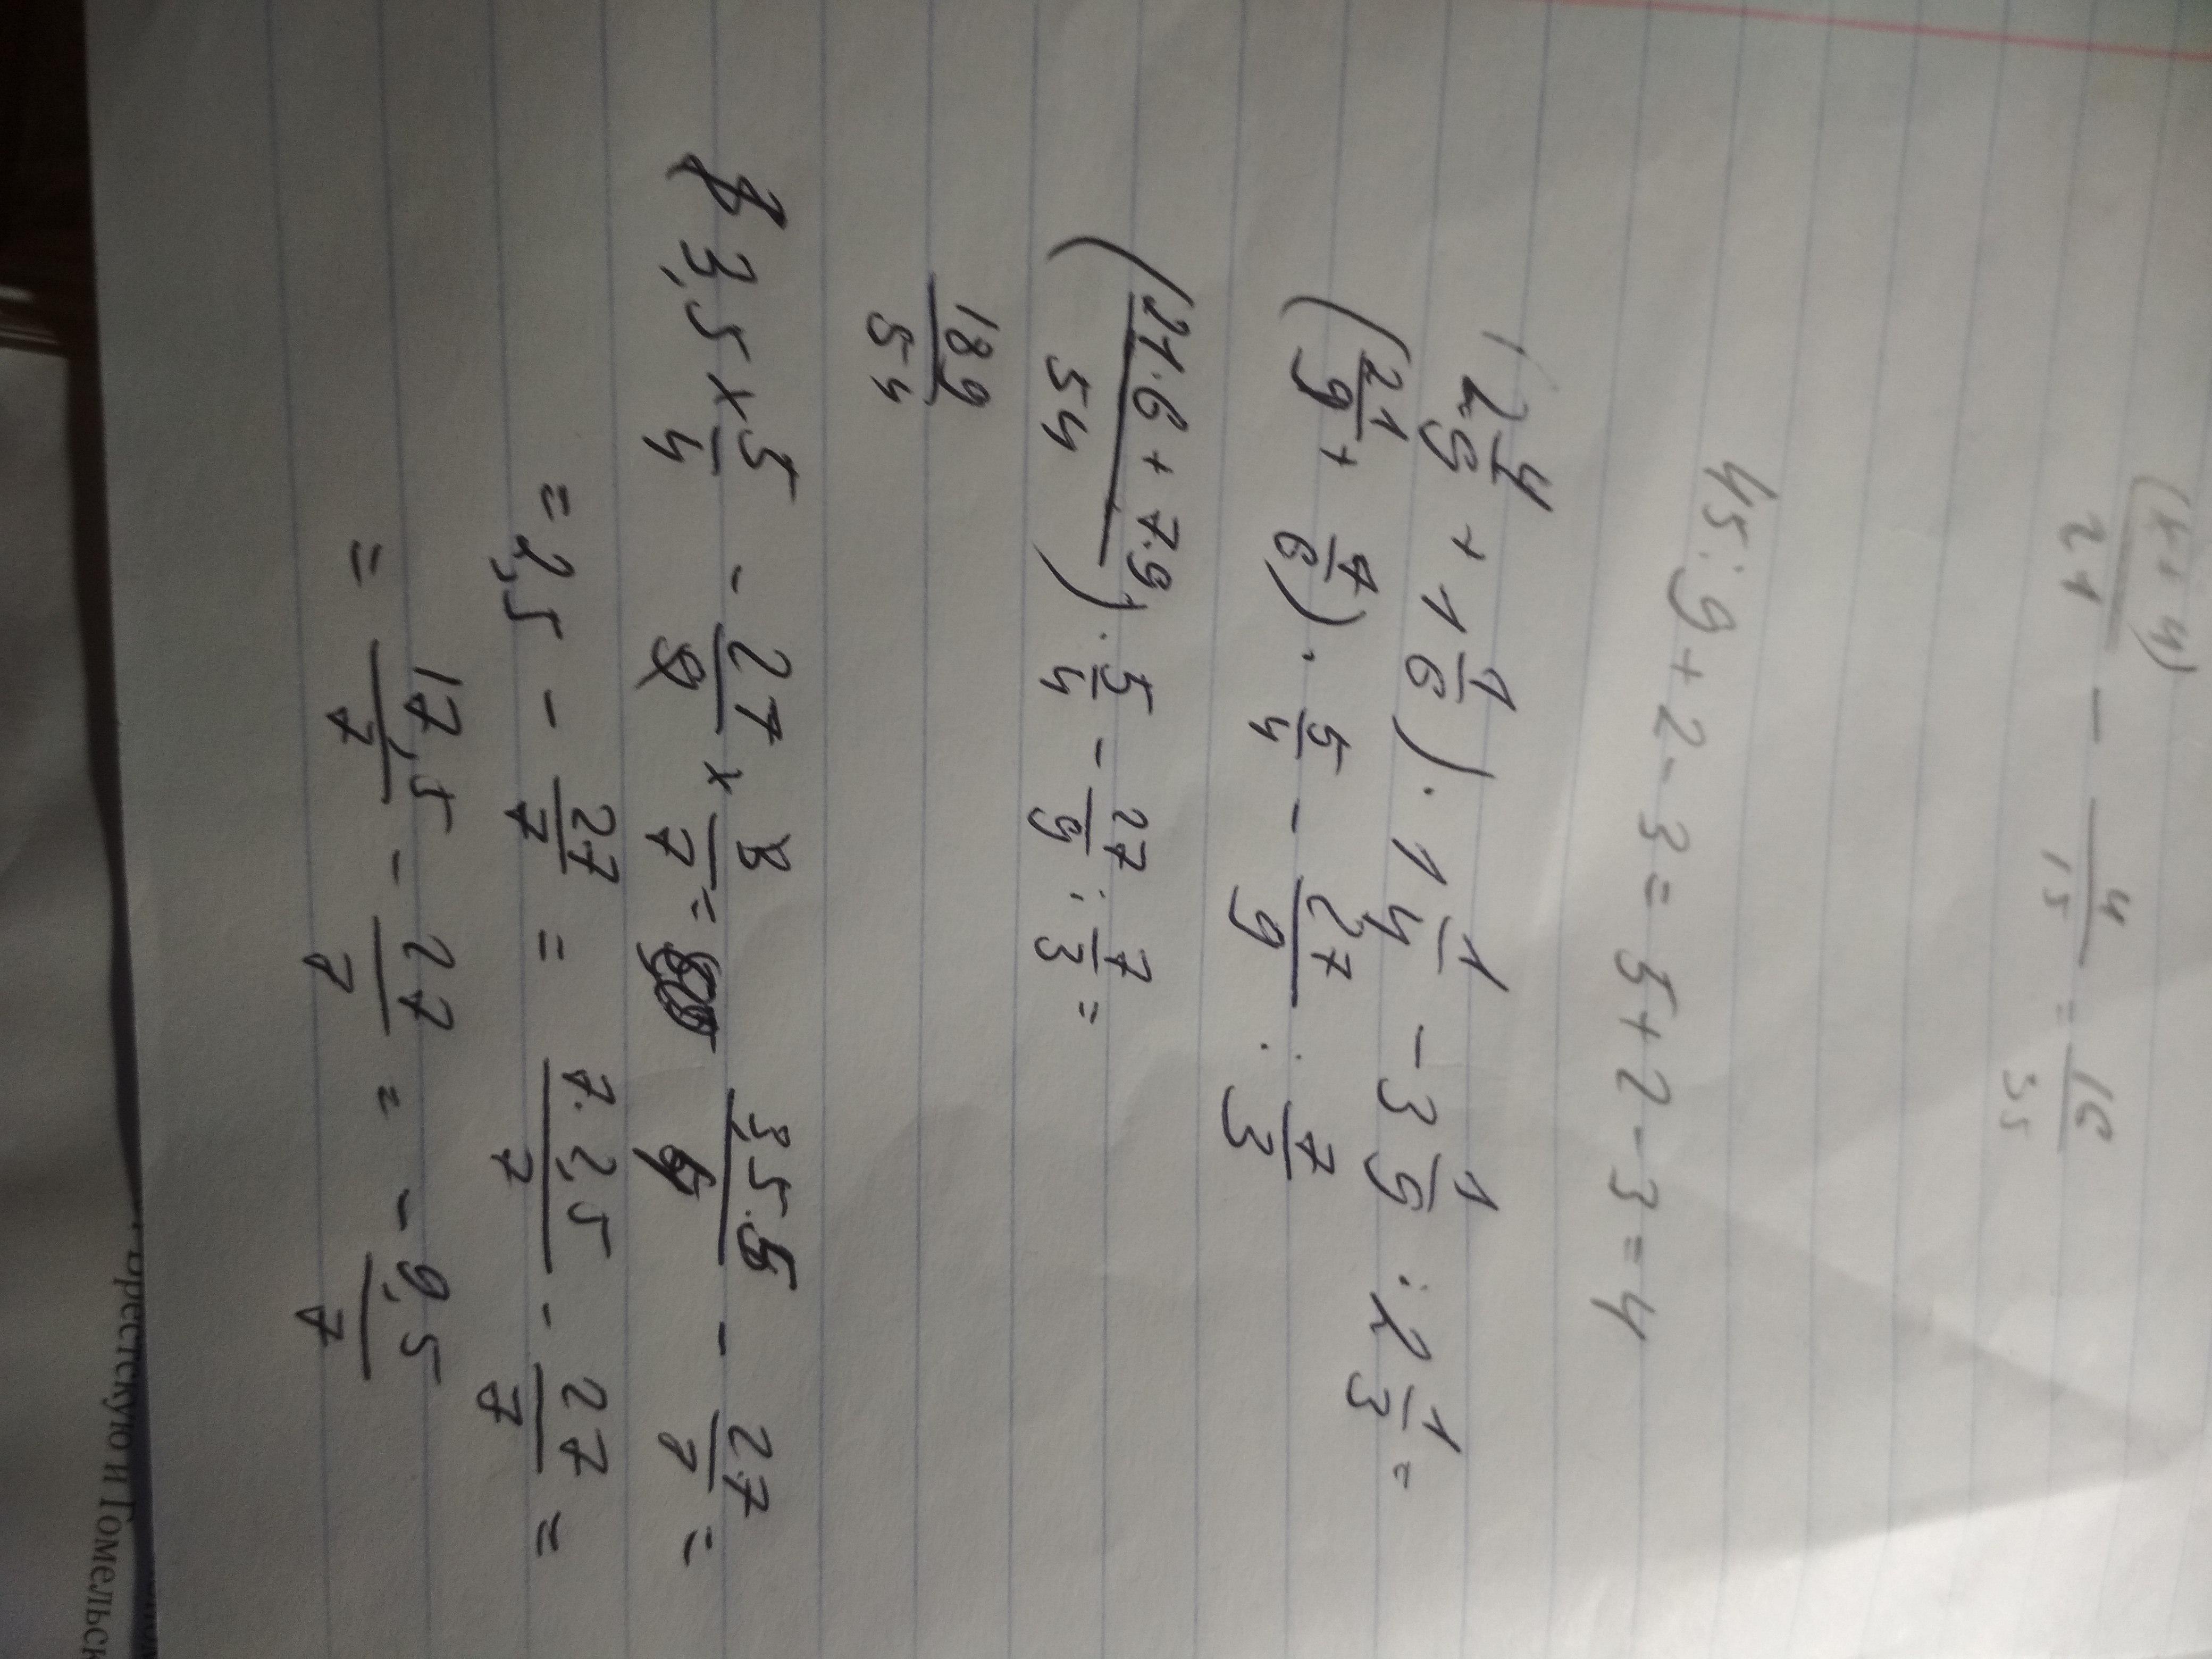 (5+4)/21 - 4/15 = 10/35
45:9+2-3=5+2-3=4
(2 4/9 + 1 1/6) · 1 1/4 - 3 1/9 : 2 1/3 =
(21/9 + 7/6) · 5/4 - 27/9 : 7/3
((21·6 + 7·9)/54) · 5/4 - 27/9 : 7/3 =
189/54
3,5 x 5/4 - 27/9 x 3/7 = 3,5·5/ - 27/7 =
= 2,5 - 27/7 = 7·2,5/7 - 27/7 =
= 17,5/7 - 27/7 = - 9,5/7
Брестскую и Гомельск